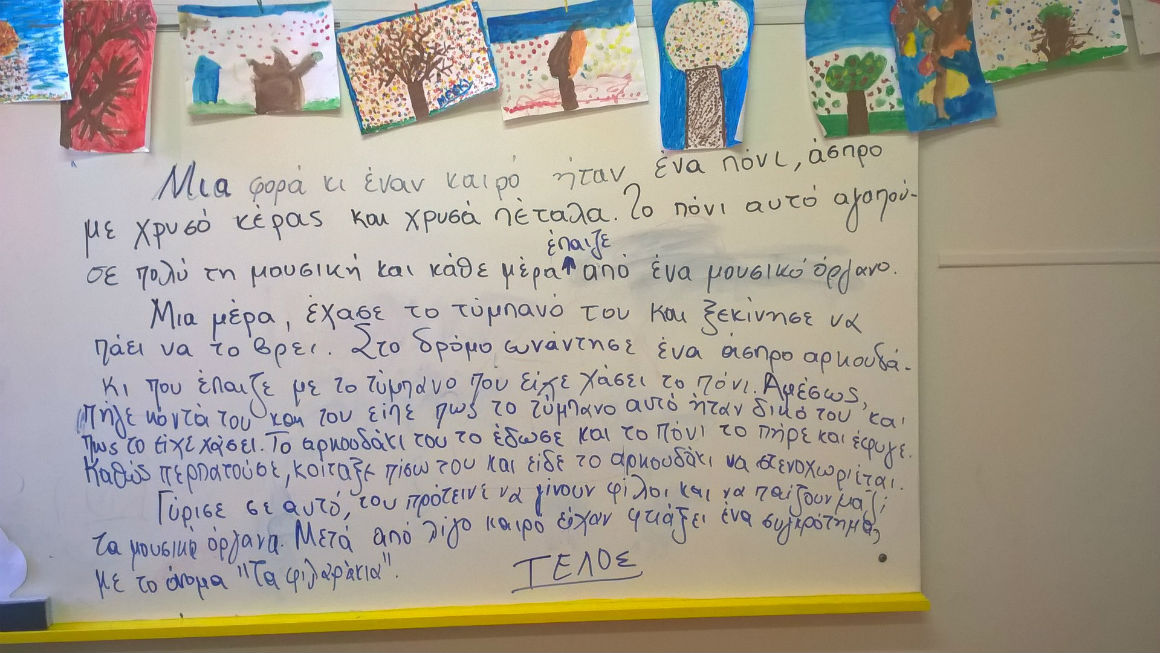 Μια φορά κι έναν καιρό ήταν ένα πόνι, άσπρο
με χρυσό κέρας και χρυσά πέταλα. Το πόνι αυτό αγαπού-
έπαιζε
σε πολύ τη μουσική και κάθε μέρα από ένα μουσικό όργανο.
Μια μέρα, έχασε το τύμπανό του και ξεκίνησε να
πάει να το βρει. Στο δρόμο συνάντησε ένα άσπρο αρκουδά-
κι που έπαιζε με το τύμπανο που είχε χάσει το πόνι. Αμέσως,
πήγε κοντά του και του είπε πως το τύμπανο αυτό ήταν δικό του και
πως το είχε χάσει. Το αρκουδάκι του το έδωσε και το πόνι το πήρε και έφυγε.
Καθώς περπατούσε, κοίταξε πίσω του και είδε το αρκουδάκι να στενοχωριέται.
Γύρισε σε αυτό, του πρότεινε να γίνουν φίλοι και να παίζουν μαζί
τα μουσικά όργανα. Μετά από λίγο καιρό είχαν φτιάξει ένα συγκρότημα,
με το όνομα "Τα φιλαράκια".
ΤΕΛΟΣ